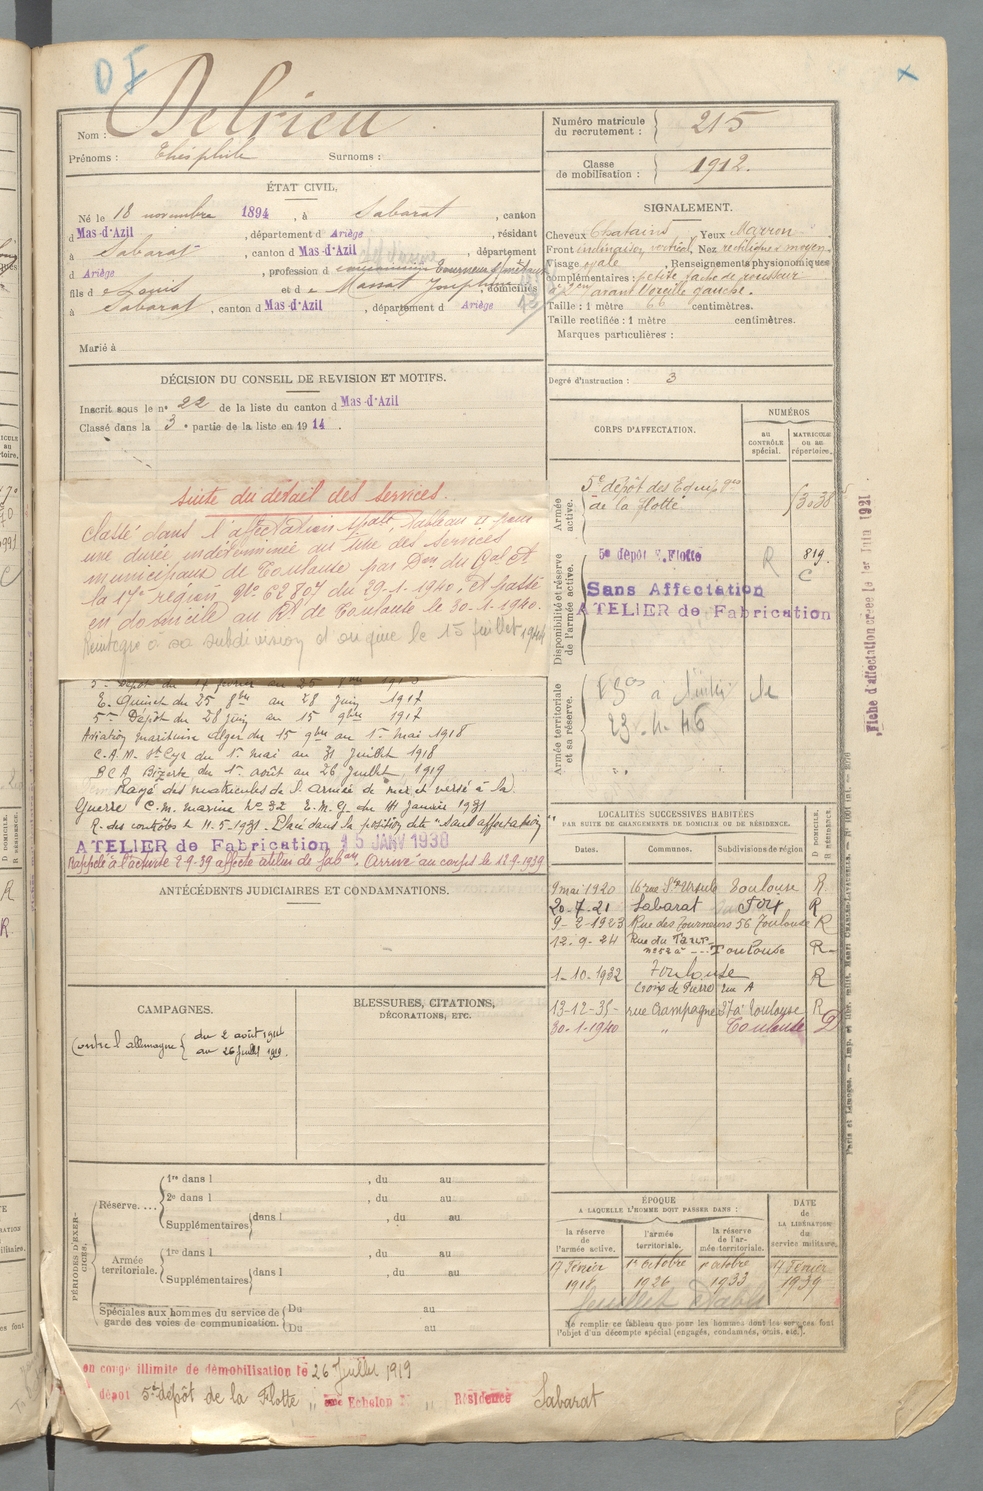 Nom : Delrieu
Prénoms : Théophile Surnoms :
ÉTAT CIVIL.
Né le 18 novembre 1894, à Sabarat, canton
d Mas-d'Azil, département d Ariège, résidant
à Sabarat, canton d Mas-d'Azil, département
d Ariège, profession d tourneur s/ métaux
fils d e Louis et d e Massat Joséphine, domiciliés
à Sabarat, canton d Mas-d'Azil, département d Ariège
Marié à
DÉCISION DU CONSEIL DE REVISION ET MOTIFS.
Inscrit sous le n° 22 de la liste du canton d Mas-d'Azil
Classé dans la 3e partie de la liste en 1914.
suite du détail des services.
Classé dans l'affectation spale Tableau II pour
une durée indéterminée au titre des services
municipaux de Toulouse par Don du Gal Ct
la 17e région, No 62807 du 29-1-1940. Et passé
en domicile au Rt de Toulouse le 30-1-1940.
Réintégré à sa subdivision d'origine le 15 juillet 1944
E. Quinet du 25 8bre au 28 Juin 1917
5me Dépôt du 28 juin au 15 9bre 1917
Aviation maritime Alger du 15 9bre au 1er mai 1918
C.A.M. St Cyr du 1er mai au 31 Juillet 1918
BCA Bizerte du 1er août au 26 Juillet 1919
Rayé des matricules de l'armée de mer et versé à la
Guerre C.M. marine No 32 E.M.G. du 14 Janvier 1931
R. des contrôles le 11.5.1931. Placé dans la position dite "Sans affectation"
ATELIER de Fabrication 15 JANV 1938
Rappelé à l'activité 2-9-39 affecté atelier de fabon. Arrivé au corps le 12-9-1939
ANTÉCÉDENTS JUDICIAIRES ET CONDAMNATIONS.
CAMPAGNES.
Contre l'allemagne { du 2 août 1914
au 26 Juillet 1919.
BLESSURES, CITATIONS,
DÉCORATIONS, ETC.
PÉRIODES D'EXERCICES.
Réserve.... 1re dans l , du au
2e dans l , du au
Supplémentaires dans l , du au
Armée territoriale. 1re dans l , du au
Supplémentaires dans l , du au
Spéciales aux hommes du service de Du au
garde des voies de communication. Du au
en congé illimité de démobilisation le 26 Juillet 1919
dépôt 5e dépôt de la Flotte " Echelon N " Résidence Sabarat
Numéro matricule
du recrutement : 215
Classe
de mobilisation : 1912.
SIGNALEMENT.
Cheveux Chatains, Yeux Marron
Front inclinaison vertical, Nez rectiligne moyen
Visage ovale, Renseignements physionomiques
complémentaires : petite tache de rousseur
à 2cm avant l'oreille gauche.
Taille : 1 mètre 66 centimètres.
Taille rectifiée : 1 mètre centimètres.
Marques particulières :
Degré d'instruction : 3
CORPS D'AFFECTATION.
NUMÉROS
AU
CONTRÔLE
spécial.
MATRICULE
OU AU
répertoire.
Armée active.
5e dépôt des Equipages
de la flotte 3038
Disponibilité et réserve de l'armée active.
5e dépôt E. Flotte R 819
C
Sans Affectation
ATELIER de Fabrication
Armée territoriale et sa réserve.
23-4-46
LOCALITÉS SUCCESSIVES HABITÉES
PAR SUITE DE CHANGEMENTS DE DOMICILE OU DE RÉSIDENCE.
Dates. Communes. Subdivisions de région D DOMICILE. R RÉSIDENCE.
9 mai 1920 16 rue Ste Ursule Toulouse R
20-7-21 Sabarat Foix R
9-2-1923 Rue des Tourneurs 56 Toulouse R
12.9-24 Rue du Taur
No 52 à --- Toulouse R
1-10-1932 Toulouse
Croix de Pierre rue A R
13-12-35- rue Campagne 27 à Toulouse R
30-1-1940 " Toulouse D
ÉPOQUE
A LAQUELLE L'HOMME DOIT PASSER DANS :
la réserve
de
l'armée active.
l'armée
territoriale.
la réserve
de l'armée
territoriale.
DATE
de
LA LIBÉRATION
du
service militaire.
17 Février 1918
1er octobre 1926
1er octobre 1933
17 Février 1939
Ne remplir ce tableau que pour les hommes dont les services font
l'objet d'un décompte spécial (engagés, condamnés, omis, etc.).
Fiche d'affectation créée le 1er Juin 1931
Paris et Limoges. — Imp. et libr. milit. Henri CHARLES-LAVAUZELLE.